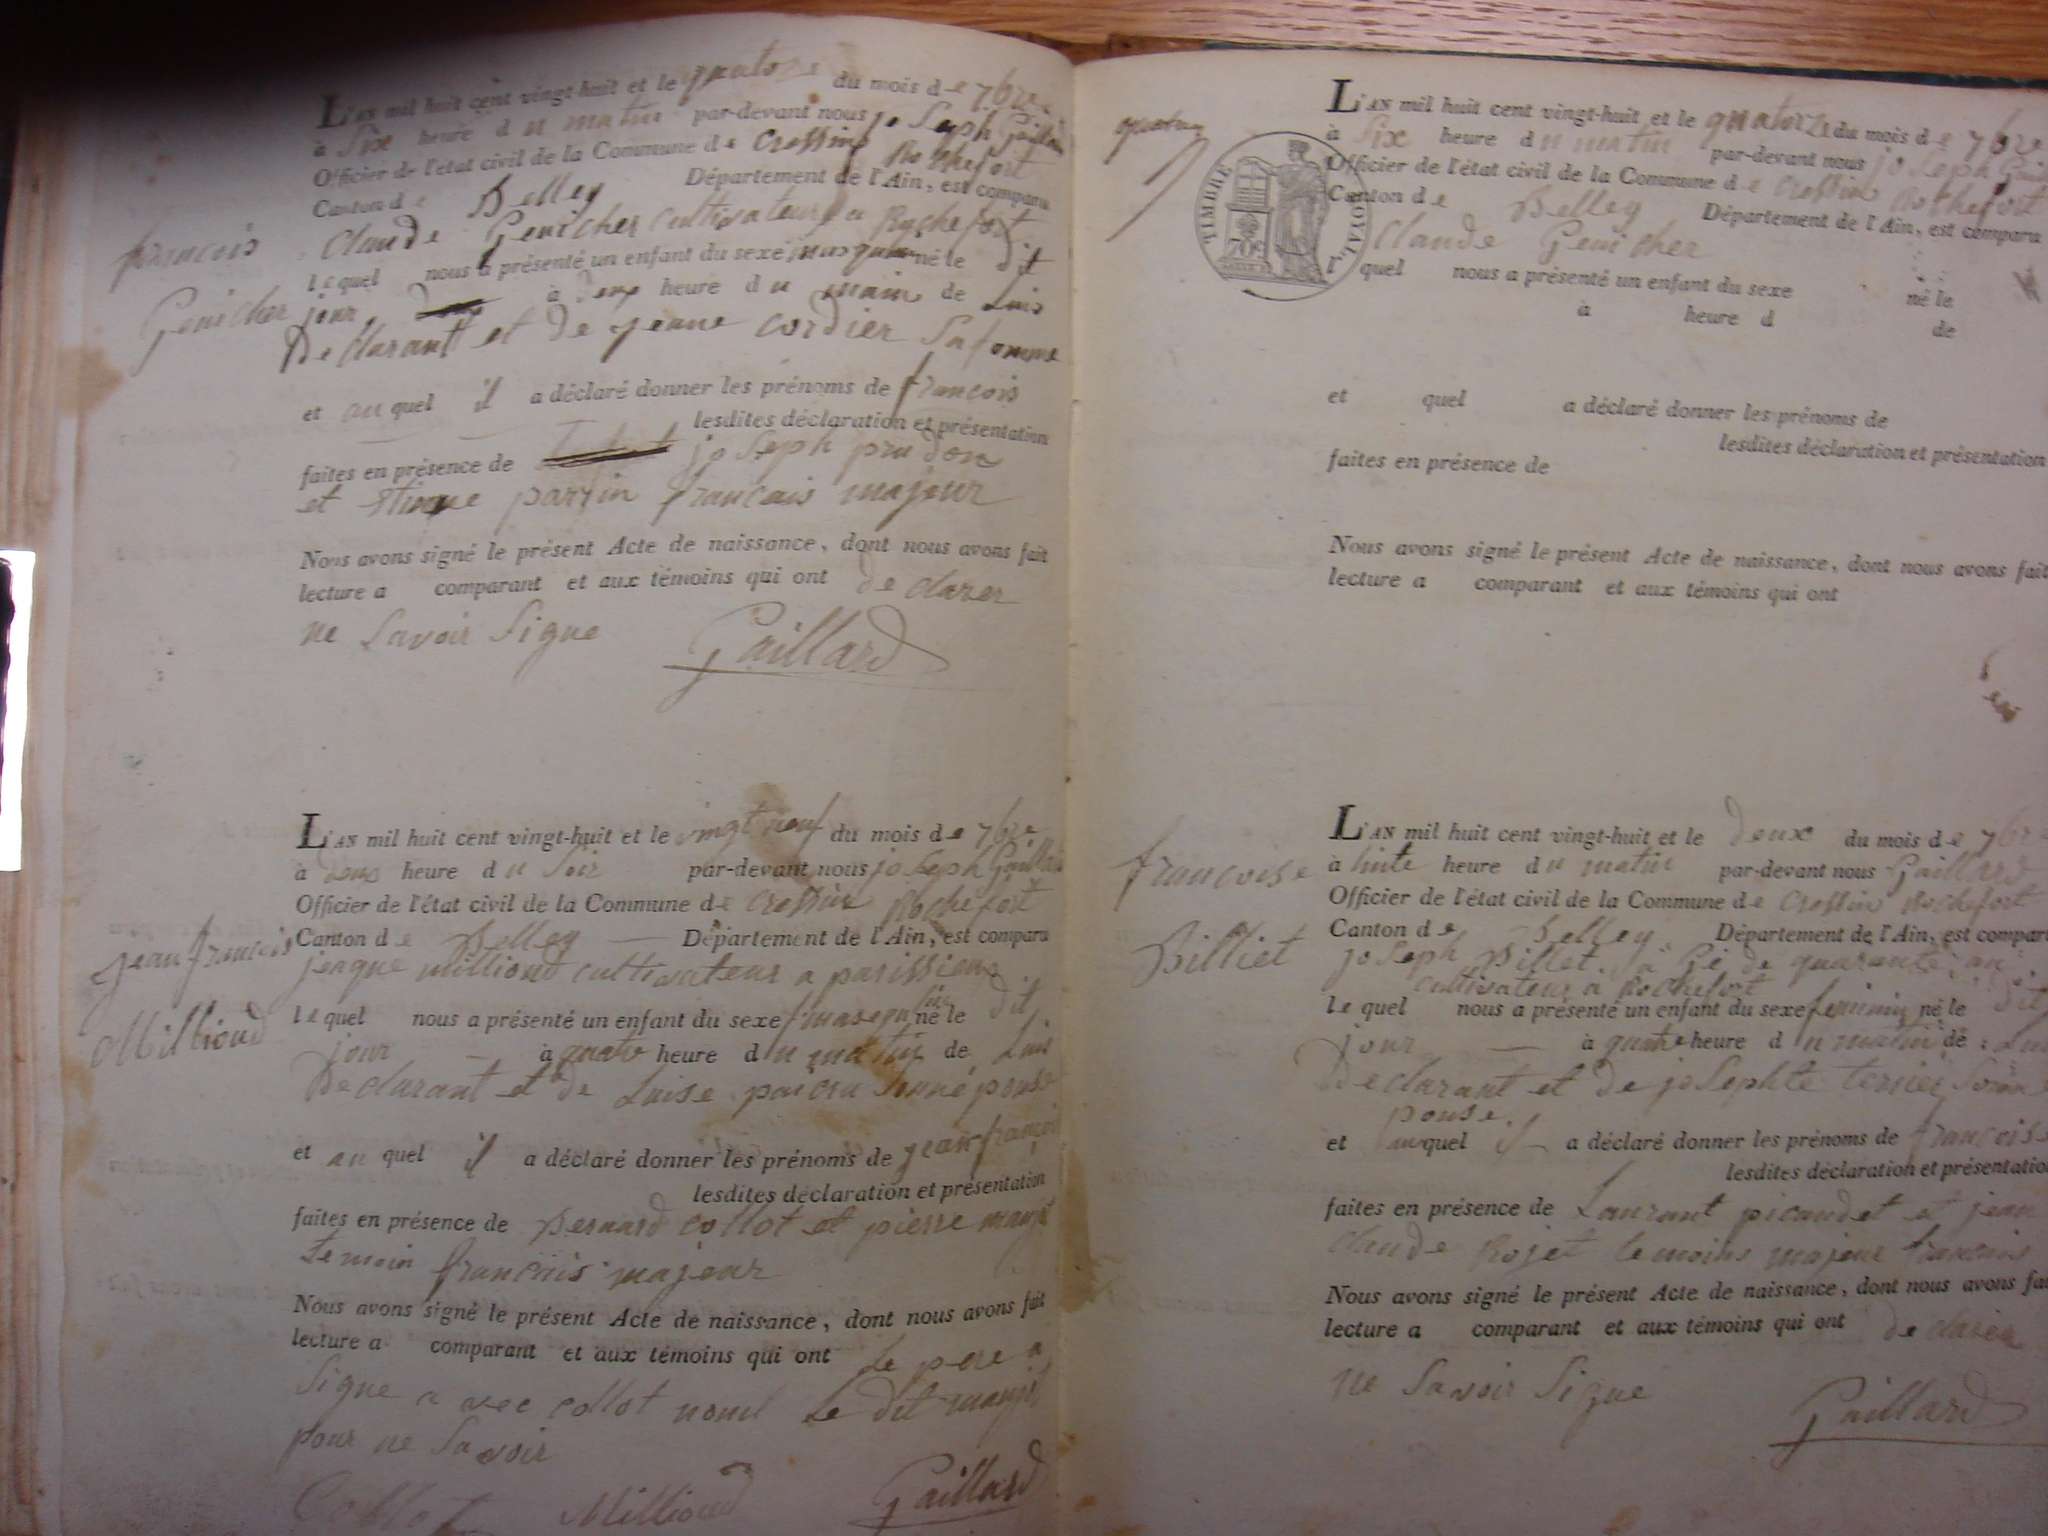 L'AN mil huit cent vingt-huit et le quatorze du mois de 7bre
à Six heure du matin par-devant nous joSeph Gaillard
Officier de l'état civil de la Commune de Cressins Rochefort
Canton de Belley Département de l'Ain, est comparu
françois
Genicher
Claude Genicher cultivateur a Rochefort
lequel nous a présenté un enfant du sexe né le dit
jour à deux heure du de Luis
Declarant et de jeane cordier Sa fomme
et auquel il a déclaré donner les prénoms de françois
lesdites déclaration et présentation
faites en présence de joSeph prudon
et francais majeur
Nous avons signé le présent Acte de naissance, dont nous avons fait
lecture a comparant et aux témoins qui ont declarer
ne Savoir Signe
Gaillard
L'AN mil huit cent vingt-huit et le vingt neuf du mois de 7bre
à deux heure du Soir par-devant nous joSeph Gaillard
Officier de l'état civil de la Commune de Cressins Rochefort
Canton de Belley Département de l'Ain, est comparu
jean francois
Milliond
jaque Milliond cultivateur a parissieux
lequel nous a présenté un enfant du sexe masqulin né le dit
jour à quatre heure du matin de Luis
Declarant et de Luise
et auquel il a déclaré donner les prénoms de jean françois
lesdites déclaration et présentation
faites en présence de Bernard Collot et pierre
temoin francais majeur
Nous avons signé le présent Acte de naissance, dont nous avons fait
lecture a comparant et aux témoins qui ont Le pere a
Signe avec Collot Le dit
pour ne Savoir
Collot Milliond Gaillard
TIMBRE ROYAL
70c
L'AN mil huit cent vingt-huit et le quatorze du mois de 7bre
à Six heure du matin par-devant nous joSeph
Officier de l'état civil de la Commune de Cressins Rochefort
Canton de Belley Département de l'Ain, est comparu
Claude Genicher
l'quel nous a présenté un enfant du sexe né le
à heure d de
et quel a déclaré donner les prénoms de
lesdites déclaration et présentation
faites en présence de
Nous avons signé le présent Acte de naissance, dont nous avons fait
lecture a comparant et aux témoins qui ont
L'AN mil huit cent vingt-huit et le deux du mois de 7bre
à huite heure du matin par-devant nous Gaillard
Officier de l'état civil de la Commune de Cressins Rochefort
Canton de Belley Département de l'Ain, est comparu
francoise
Billiet
joSeph Billet a Gé de quarante an
cultivateur a Rochefort
lequel nous a présenté un enfant du sexe feminin né le dit
jour à quatre heure du matin de
Declarant et de joSephte
pouse
et auquel il a déclaré donner les prénoms de
lesdites déclaration et présentation
faites en présence de Laurant picaudet et jean
claude Rojet temoins majeur francais
Nous avons signé le présent Acte de naissance, dont nous avons fait
lecture a comparant et aux témoins qui ont declarer
ne Savoir Signe
Gaillard